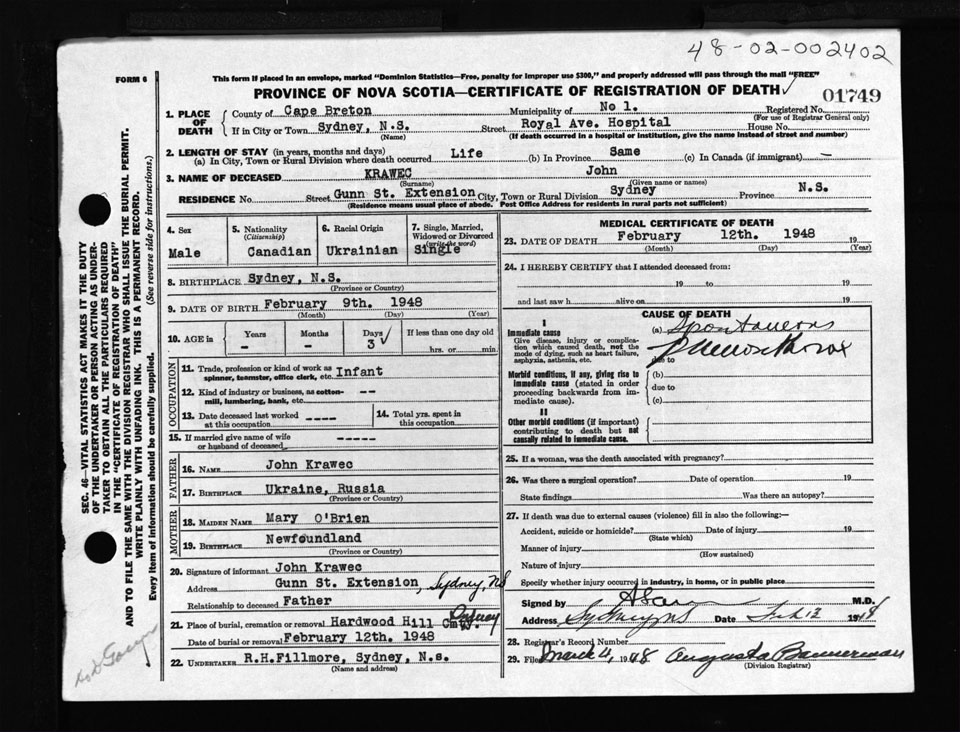 48-02-002402
FORM 6
This form if placed in an envelope, marked "Dominion Statistics—Free, penalty for improper use $300," and properly addressed will pass through the mail "FREE"
PROVINCE OF NOVA SCOTIA—CERTIFICATE OF REGISTRATION OF DEATH ✓ 01749
1. PLACE OF DEATH County of Cape Breton Municipality of No 1. Registered No.
(For use of Registrar General only)
If in City or Town Sydney, N.S. Street Royal Ave. Hospital House No.
(Name) (If death occurred in a hospital or institution, give the name instead of street and number)
2. LENGTH OF STAY (in years, months and days)
(a) In City, Town or Rural Division where death occurred Life (b) In Province Same (c) In Canada (if immigrant) —
3. NAME OF DECEASED KRAWEC John
(Surname) (Given name or names)
RESIDENCE No. Street Gunn St. Extension City, Town or Rural Division Sydney Province N.S.
(Residence means usual place of abode. Post Office Address for residents in rural parts not sufficient)
4. Sex Male
5. Nationality (Citizenship) Canadian
6. Racial Origin Ukrainian
7. Single, Married, Widowed or Divorced (write the word) Single
8. BIRTHPLACE Sydney, N.S.
(Province or Country)
9. DATE OF BIRTH February 9th. 1948
(Month) (Day) (Year)
10. AGE in Years - Months - Days 3 ✓ If less than one day old hrs. or min.
OCCUPATION
11. Trade, profession or kind of work as spinner, teamster, office clerk, etc. Infant
12. Kind of industry or business, as cotton-mill, lumbering, bank, etc. --
13. Date deceased last worked at this occupation ----
14. Total yrs. spent in this occupation
15. If married give name of wife or husband of deceased -----
FATHER
16. NAME John Krawec
17. BIRTHPLACE Ukraine, Russia
(Province or Country)
MOTHER
18. MAIDEN NAME Mary O'Brien
19. BIRTHPLACE Newfoundland
(Province or Country)
20. Signature of informant John Krawec
Address Gunn St. Extension, Sydney, NS
Relationship to Deceased Father
21. Place of burial, cremation or removal Hardwood Hill Cmty. Sydney
Date of burial or removal February 12th. 1948
22. UNDERTAKER R.H.Fillmore, Sydney, N.s.
(Name and address)
MEDICAL CERTIFICATE OF DEATH
23. DATE OF DEATH February 12th. 1948 19
(Month) (Day) (Year)
24. I HEREBY CERTIFY that I attended deceased from:
19 to 19
and last saw h alive on 19
CAUSE OF DEATH
I
Immediate cause
Give disease, injury or complication which caused death, not the mode of dying, such as heart failure, asphyxia, asthenia, etc.
(a) Spontaneous Pneumothorax
due to
Morbid conditions, if any, giving rise to immediate cause (stated in order proceeding backwards from immediate cause).
(b)
due to
(c)
II
Other morbid conditions (if important) contributing to death but not causally related to immediate cause.
25. If a woman, was the death associated with pregnancy?
26. Was there a surgical operation? Date of operation 19
State findings Was there an autopsy?
27. If death was due to external causes (violence) fill in also the following:—
Accident, suicide or homicide? Date of injury 19
(State which)
Manner of injury
(How sustained)
Nature of injury
Specify whether injury occurred in industry, in home, or in public place
Signed by M.D.
Address Sydney NS Date Feb 12 1948
28. Registrar's Record Number
29. Filed March 4, 1948 Augusta Bannerman
(Division Registrar)
SEC. 46—VITAL STATISTICS ACT MAKES IT THE DUTY
OF THE UNDERTAKER OR PERSON ACTING AS UNDERTAKER TO OBTAIN ALL THE PARTICULARS REQUIRED
IN THE "CERTIFICATE OF REGISTRATION OF DEATH"
AND TO FILE THE SAME WITH THE DIVISION REGISTRAR WHO SHALL ISSUE THE BURIAL PERMIT.
WRITE PLAINLY WITH UNFADING INK. THIS IS A PERMANENT RECORD.
Every item of information should be carefully supplied. (See reverse side for instructions.)